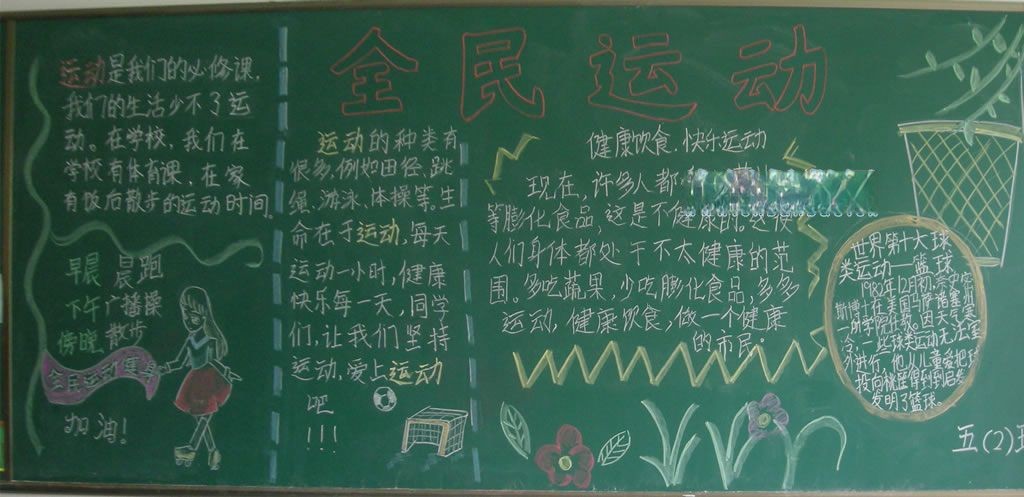 全民运动
运动是我们的必修课,
我们的生活少不了运
动。在学校,我们在
学校有体育课,在家
有饭后散步的运动时间。
早晨 晨跑
下午 广播操
傍晚 散步
全民运动健身
加油!
运动的种类有
很多,例如田径、跳
绳、游泳、体操等。生
命在于运动,每天
运动一小时,健康
快乐每一天,同学
们,让我们坚持
运动,爱上运动
吧
!!!
健康饮食、快乐运动
现在,许多人都
等膨化食品,这是不健康的。这使
人们身体都处于不太健康的范
围。多吃蔬果,少吃膨化食品,多多
运动,健康饮食,做一个健康
的市民。
世界第十大球
类运动——篮球
1980年12月初,奈
斯博士在美国马萨
一所学院任教。因天
冷,一些球类运动无法室
外进行,他从儿童爱把
投向
发明了篮球。
五(2)